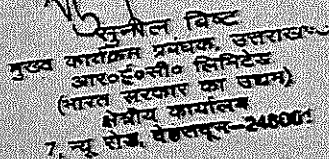 सुनील बिष्ट
मुख्य कार्यक्रम प्रबंधक, उत्तराखण्ड
आर०ई०सी० लिमिटेड
(भारत सरकार का उद्यम)
क्षेत्रीय कार्यालय
7, न्यू रोड, देहरादून–248001